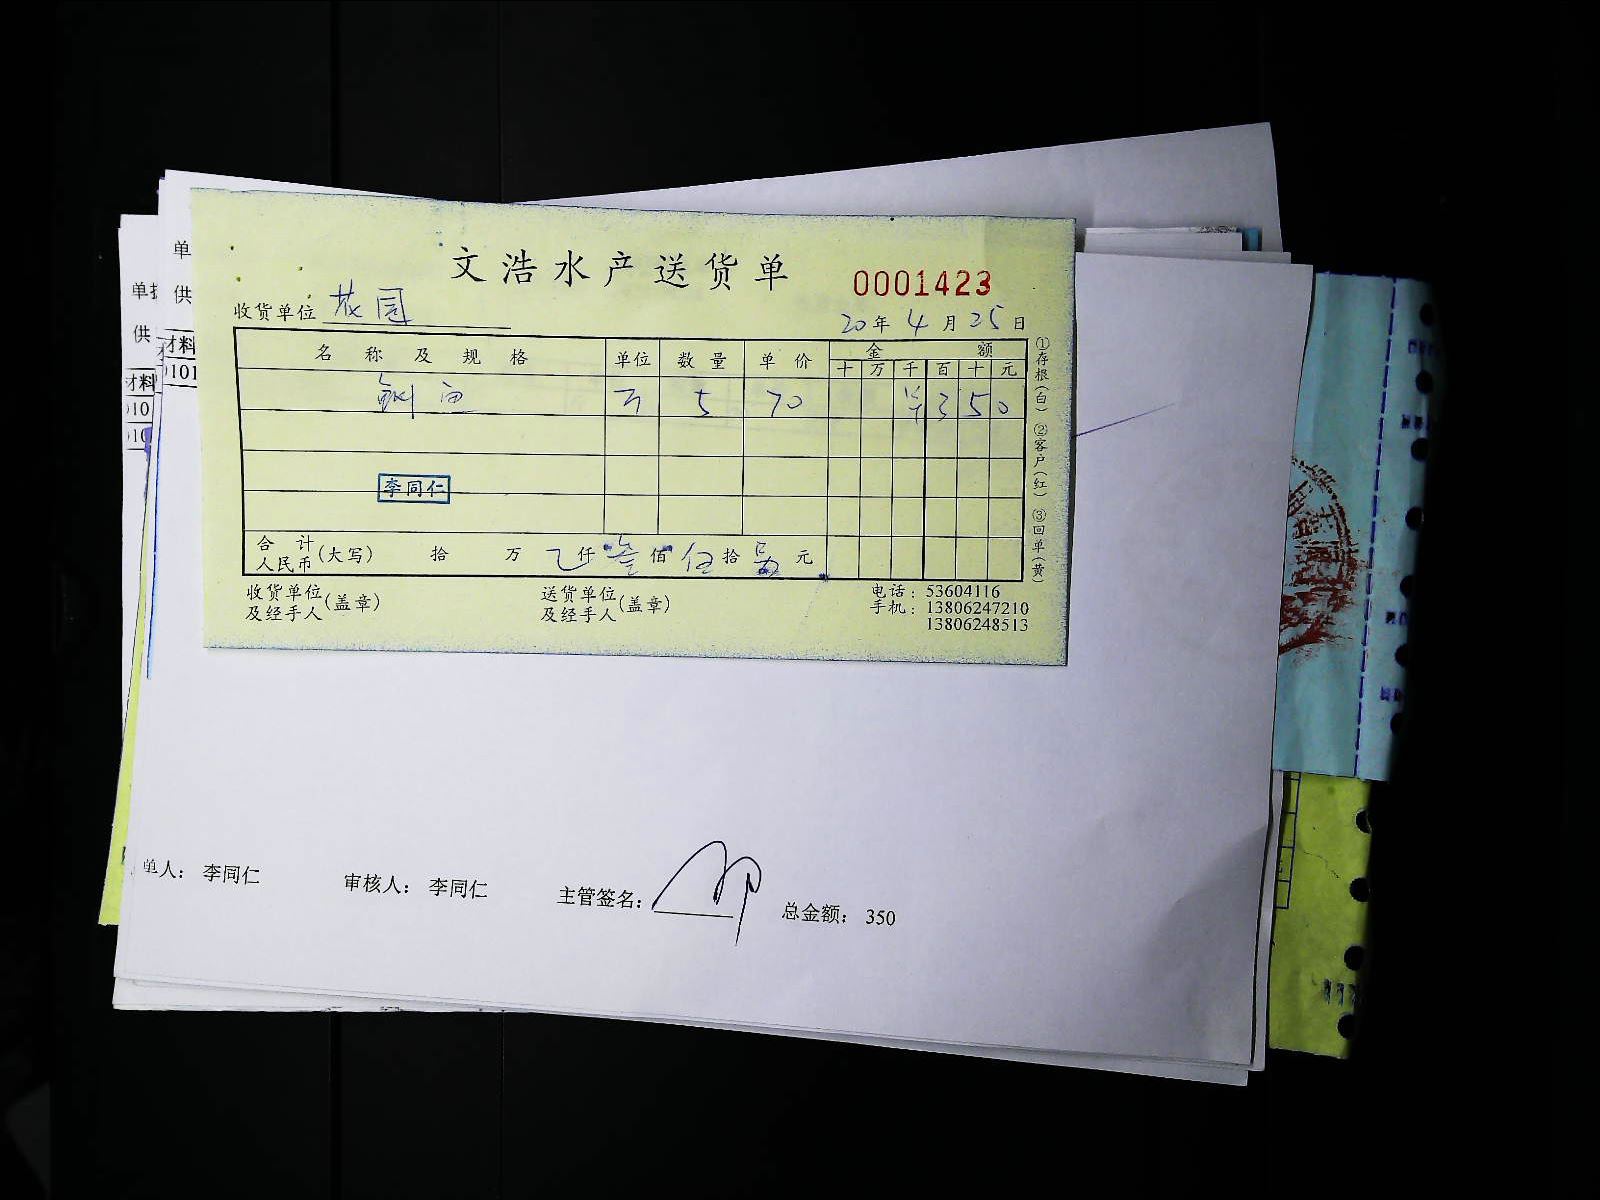 文浩水产送货单
0001423
收货单位 花园
20年4月25日
名称及规格 单位 数量 单价 金额
十 万 千 百 十 元
鱼 5 70 ¥ 3 5 0
李同仁
合计人民币(大写) 拾 万 仟 叁佰 伍拾 元
①存根(白) ②客户(红) ③回单(黄)
收货单位及经手人(盖章)
送货单位及经手人(盖章)
电话：53604116
手机：13806247210
13806248513
单人： 李同仁 审核人： 李同仁 主管签名： 总金额： 350
单
供
材料
0101
单
供
材料